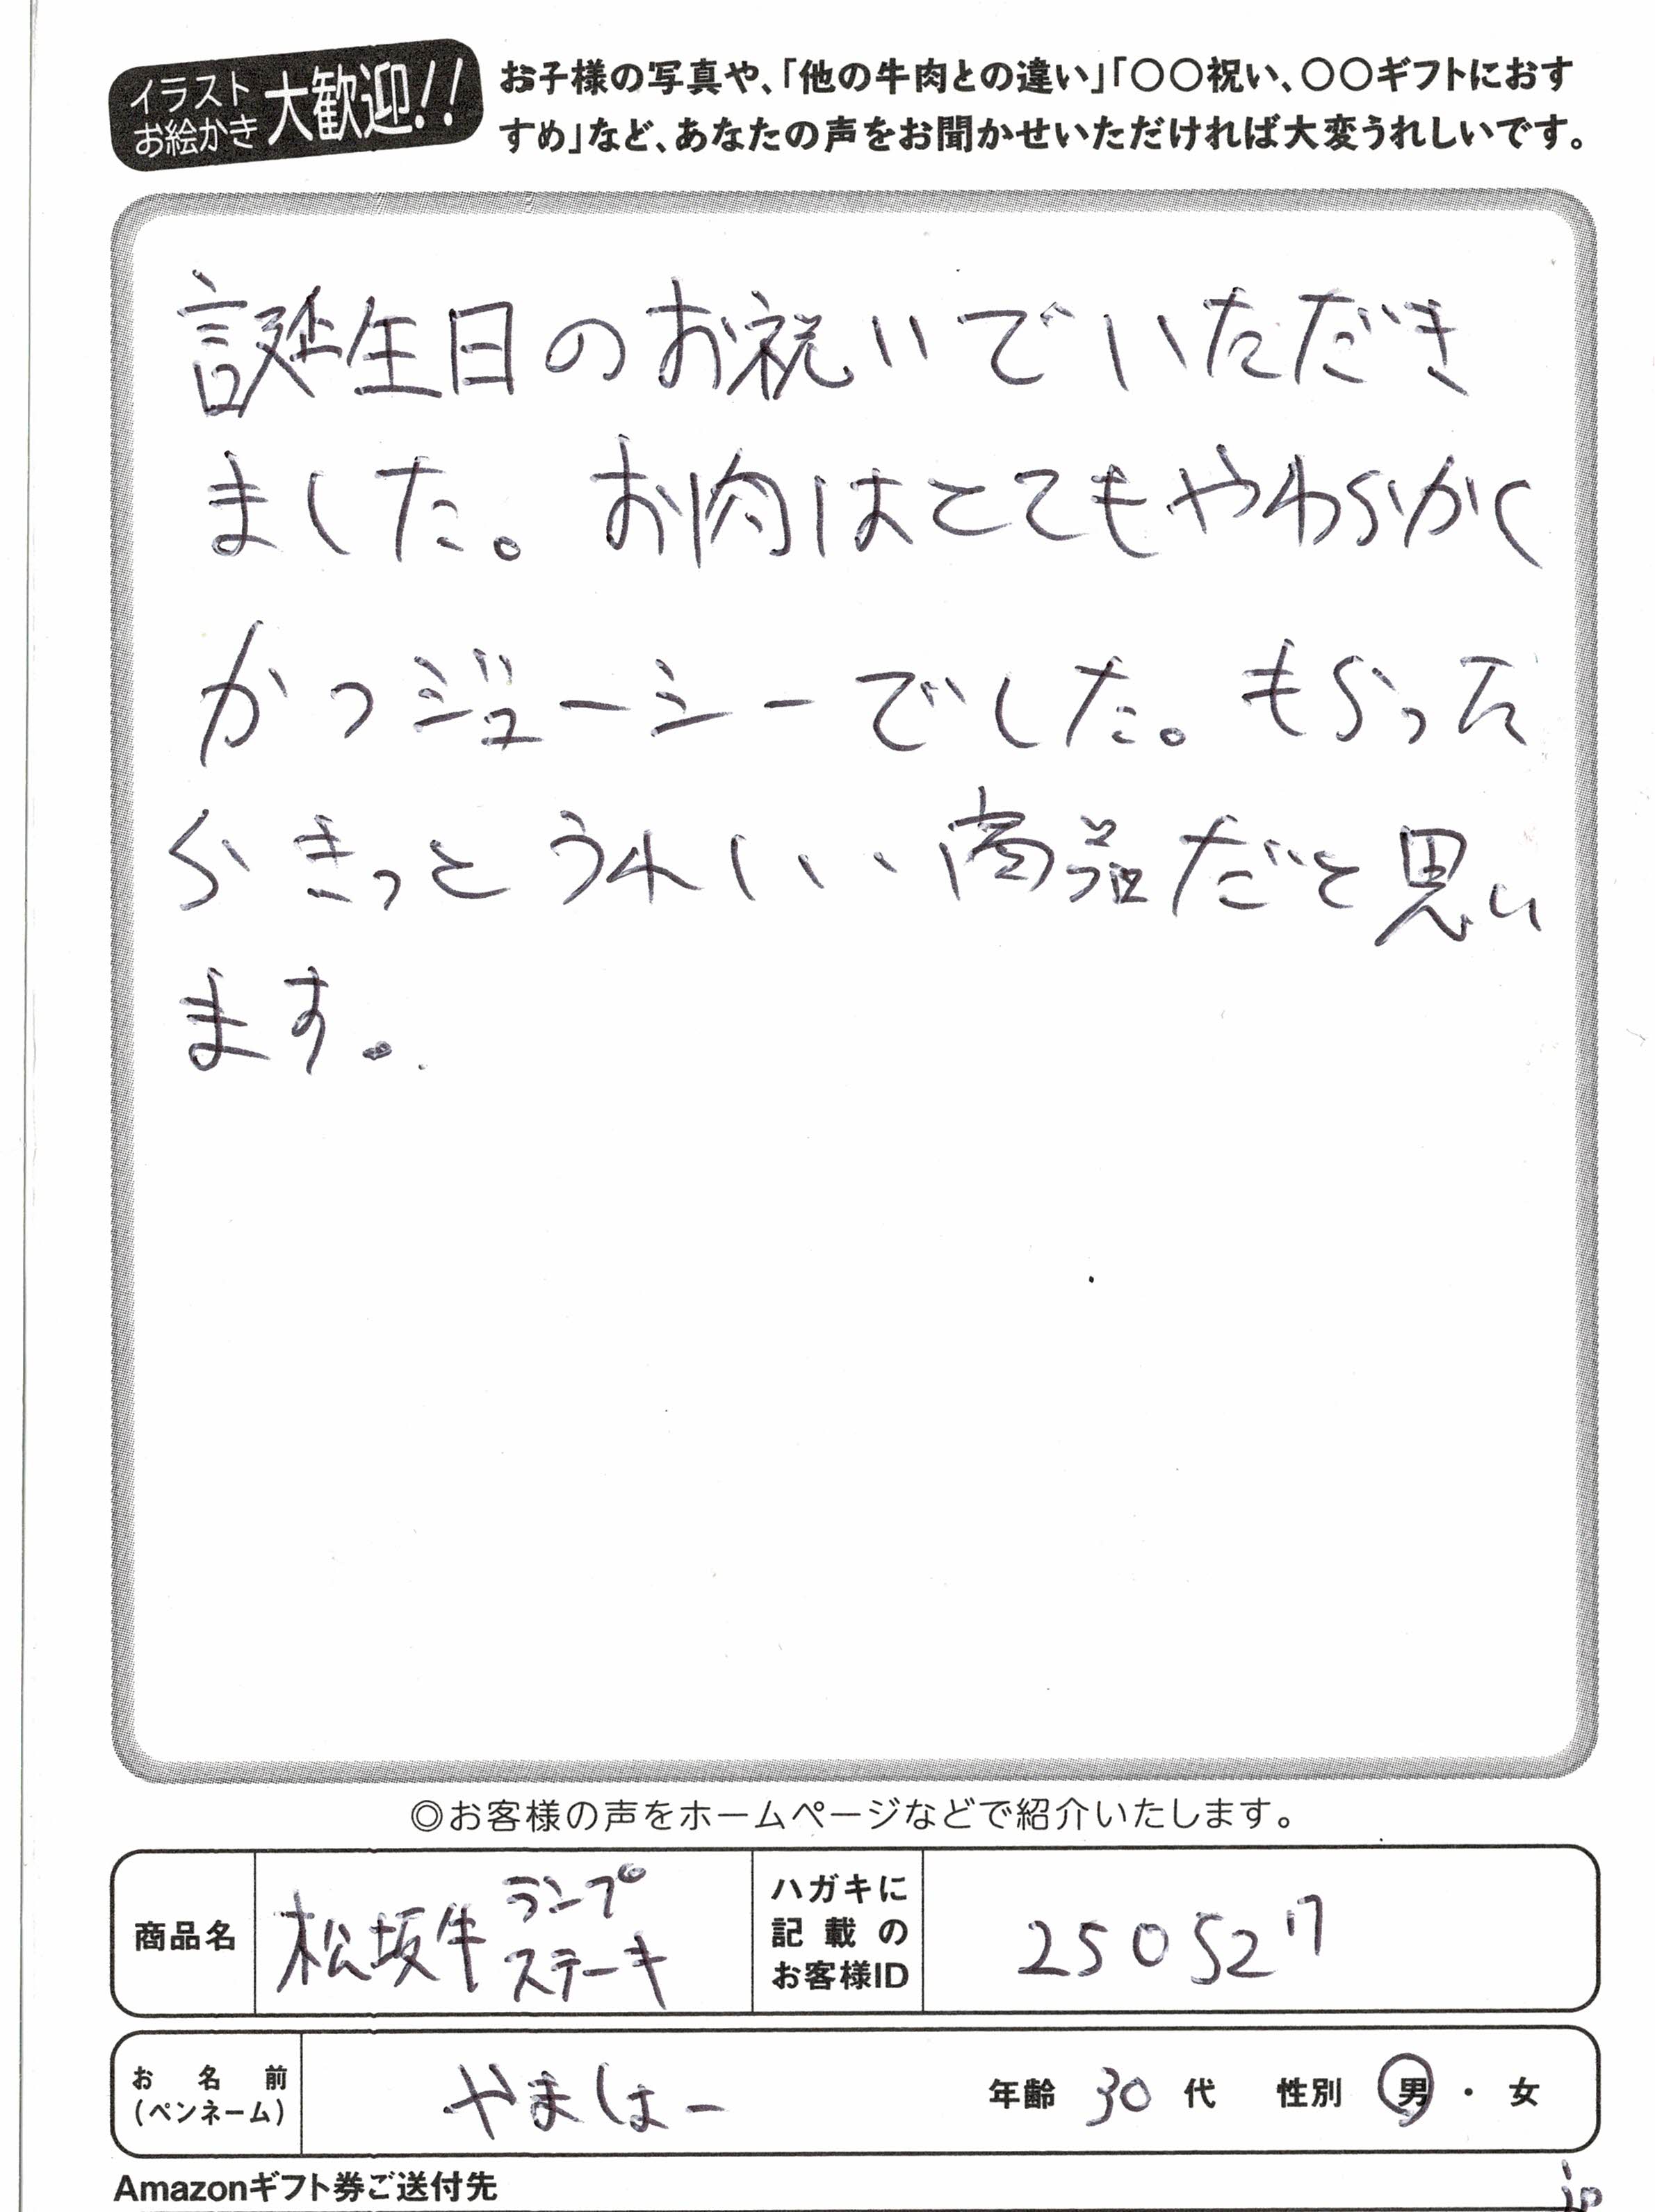 イラスト
お絵かき
大歓迎!!
お子様の写真や、「他の牛肉との違い」「〇〇祝い、〇〇ギフトにおす
すめ」など、あなたの声をお聞かせいただければ大変うれしいです。
誕生日のお祝いでいただき
ました。お肉はとてもやわらかく
かつジューシーでした。もらった
らきっとうれしい商品だと思い
ます。
◎お客様の声をホームページなどで紹介いたします。
商品名
松坂牛ランプ
ステーキ
ハガキに
記載の
お客様ID
2505277
お名前
(ペンネーム)
やましょー
年齢 30 代 性別 男・女
Amazonギフト券ご送付先
jp